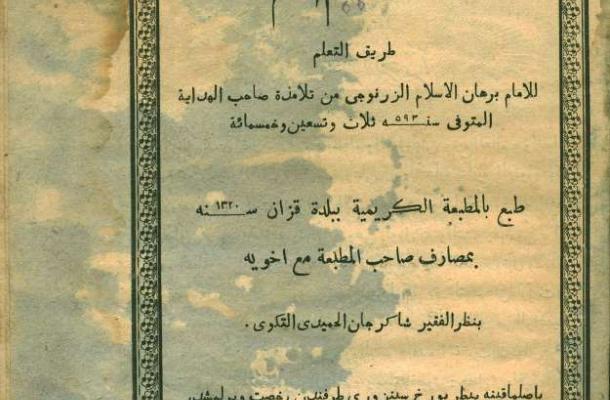 طريق التعلم
للامام برهان الاسلام الزرنوجى من تلامذة صاحب الهداية
المتوفى سنه ٥٩٣ ثلاث وتسعين وخمسمائة
طبع بالمطبعة الكريمية ببلدة قزان سنه ١٣٢٠
بمصارف صاحب المطبعة مع اخويه
بنظر الفقير شاكرجان الحميدى التكوى.
باصلماقينه رخصت ويرلمشدر